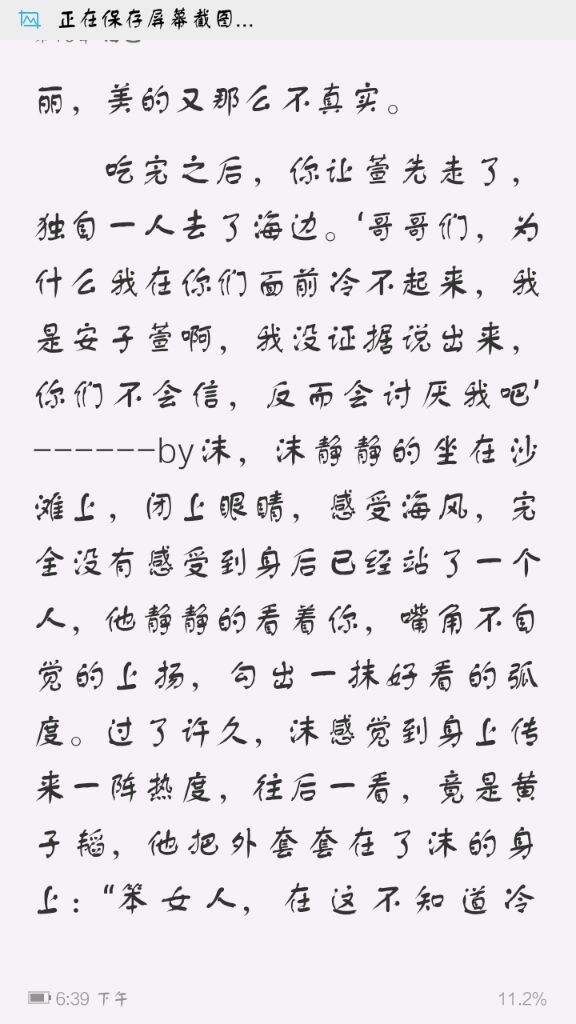 正在保存屏幕截图...
丽，美的又那么不真实。
吃完之后，你让萱先走了，
独自一人去了海边。‘哥哥们，为
什么我在你们面前冷不起来，我
是安子萱啊，我没证据说出来，
你们不会信，反而会讨厌我吧’
------by沫，沫静静的坐在沙
滩上，闭上眼睛，感受海风，完
全没有感受到身后已经站了一个
人，他静静的看着你，嘴角不自
觉的上扬，勾出一抹好看的弧
度。过了许久，沫感觉到身上传
来一阵热度，往后一看，竟是黄
子韬，他把外套套在了沫的身
上：“笨女人，在这不知道冷
6:39 下午
11.2%